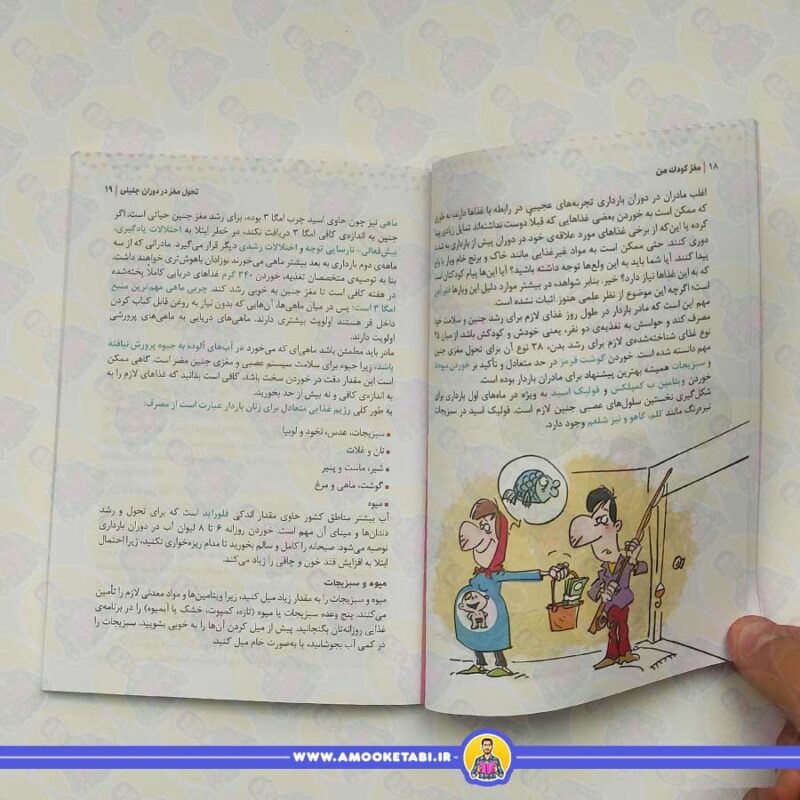 ۱۸ | مغز کودک من
اغلب مادران در دوران بارداری تجربه‌های عجیبی در رابطه با غذاها دارند، به طوری
که ممکن است به خوردن بعضی غذاهایی که قبلا دوست نداشته‌اند تمایل زیادی پیدا
کرده یا این‌که از برخی غذاهای مورد علاقه‌ی خود در دوران پیش از بارداری به شدت
دوری کنند. حتی ممکن است به مواد غیرغذایی مانند خاک و برنج خام ویار یا ولع
پیدا کنند. آیا شما باید به این ولع‌ها توجه داشته باشید؟ آیا این‌ها پیام کودکتان است
که به این غذاها نیاز دارد؟ خیر، بنابر شواهد، در بیشتر موارد دلیل این ویارها
است؛ اگرچه این موضوع از نظر علمی هنوز اثبات نشده است.
مهم این است که مادر باردار در طول روز غذای لازم برای رشد جنین و سلامت خود
مصرف کند و حواسش به تغذیه‌ی دو نفر، یعنی خودش و کودکش باشد. از میان ۴۵
نوع غذای شناخته‌شده‌ی لازم برای رشد بدن، ۳۸ نوع آن برای تحول مغزی جنین
مهم دانسته شده است. خوردن گوشت قرمز در حد متعادل و تأکید بر خوردن میوه‌ها
و سبزیجات همیشه بهترین پیشنهاد برای مادران باردار بوده است.
خوردن ویتامین ب کمپلکس و فولیک اسید به ویژه در ماه‌های اول بارداری برای
شکل‌گیری نخستین سلول‌های عصبی جنین لازم است. فولیک اسید در سبزیجات
تیره‌رنگ مانند کلم، کاهو و نیز شلغم وجود دارد.
تحول مغز در دوران جنینی | ۱۹
ماهی نیز چون حاوی اسید چرب امگا ۳ بوده، برای رشد مغز جنین حیاتی است. اگر
جنین به اندازه‌ی کافی امگا ۳ دریافت نکند، در خطر ابتلا به اختلالات یادگیری،
بیش‌فعالی-نارسایی توجه و اختلالات رشدی دیگر قرار می‌گیرد. مادرانی که از سه
ماهه‌ی دوم بارداری به بعد بیشتر ماهی می‌خورند نوزادان باهوش‌تری خواهند داشت.
بنا به توصیه‌ی متخصصان تغذیه، خوردن ۳۴۰ گرم غذاهای دریایی کاملا پخته‌شده
در هفته کافی است تا مغز جنین به خوبی رشد کند. چربی ماهی مهم‌ترین منبع
امگا ۳ است؛ پس در میان ماهی‌ها، آن‌هایی که بدون نیاز به روغن قابل کباب کردن
داخل فر هستند اولویت بیشتری دارند. ماهی‌های دریایی به ماهی‌های پرورشی
اولویت دارند.
مادر باید مطمئن باشد ماهی‌ای که می‌خورد در آب‌های آلوده به جیوه پرورش نیافته
باشد، زیرا جیوه برای سلامت سیستم عصبی و مغزی جنین مضر است. گاهی ممکن
است این مقدار دقت در خوردن سخت باشد. کافی است بدانید که غذاهای لازم را به
به اندازه‌ی کافی و نه بیش از حد بخورید.
به طور کلی رژیم غذایی متعادل برای زنان باردار عبارت است از مصرف:
▪ سبزیجات، عدس، نخود و لوبیا
▪ نان و غلات
▪ شیر، ماست و پنیر
▪ گوشت، ماهی و مرغ
▪ میوه
آب بیشتر مناطق کشور حاوی مقدار اندکی فلوراید است که برای تحول و رشد
دندان‌ها و مینای آن مهم است. خوردن روزانه ۶ تا ۸ لیوان آب در دوران بارداری
توصیه می‌شود. صبحانه را کامل و سالم بخورید تا مدام ریزه‌خواری نکنید، زیرا احتمال
ابتلا به افزایش قند خون و چاقی را زیاد می‌کند.
میوه و سبزیجات
میوه و سبزیجات را به مقدار زیاد میل کنید، زیرا ویتامین‌ها و مواد معدنی لازم را تأمین
می‌کنند. پنج وعده سبزیجات یا میوه (تازه، کمپوت، خشک یا آبمیوه) را در برنامه‌ی
غذایی روزانه‌تان بگنجانید. پیش از میل کردن آن‌ها را به خوبی بشویید. سبزیجات را
در کمی آب بجوشانید، یا به‌صورت خام میل کنید.
WWW.AMOOKETABI.IR